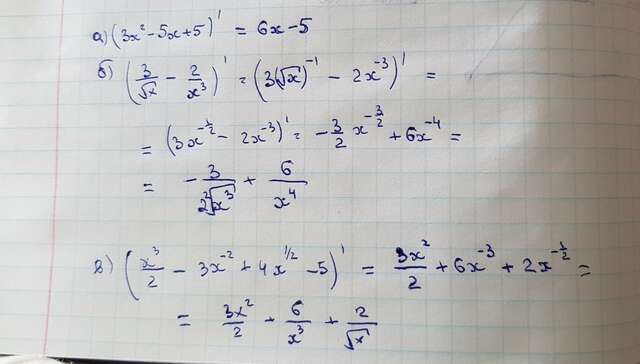 а) (3x² - 5x + 5)' = 6x - 5
б) (3/√x - 2/x³)' = (3(√x)⁻¹ - 2x⁻³)' =
= (3x^(-1/2) - 2x⁻³)' = -3/2 x^(-3/2) + 6x⁻⁴ =
= -3/(2 ²√x³) + 6/x⁴
в) (x³/2 - 3x⁻² + 4x^(1/2) - 5)' = 3x²/2 + 6x⁻³ + 2x^(-1/2) =
= 3x²/2 + 6/x³ + 2/√x